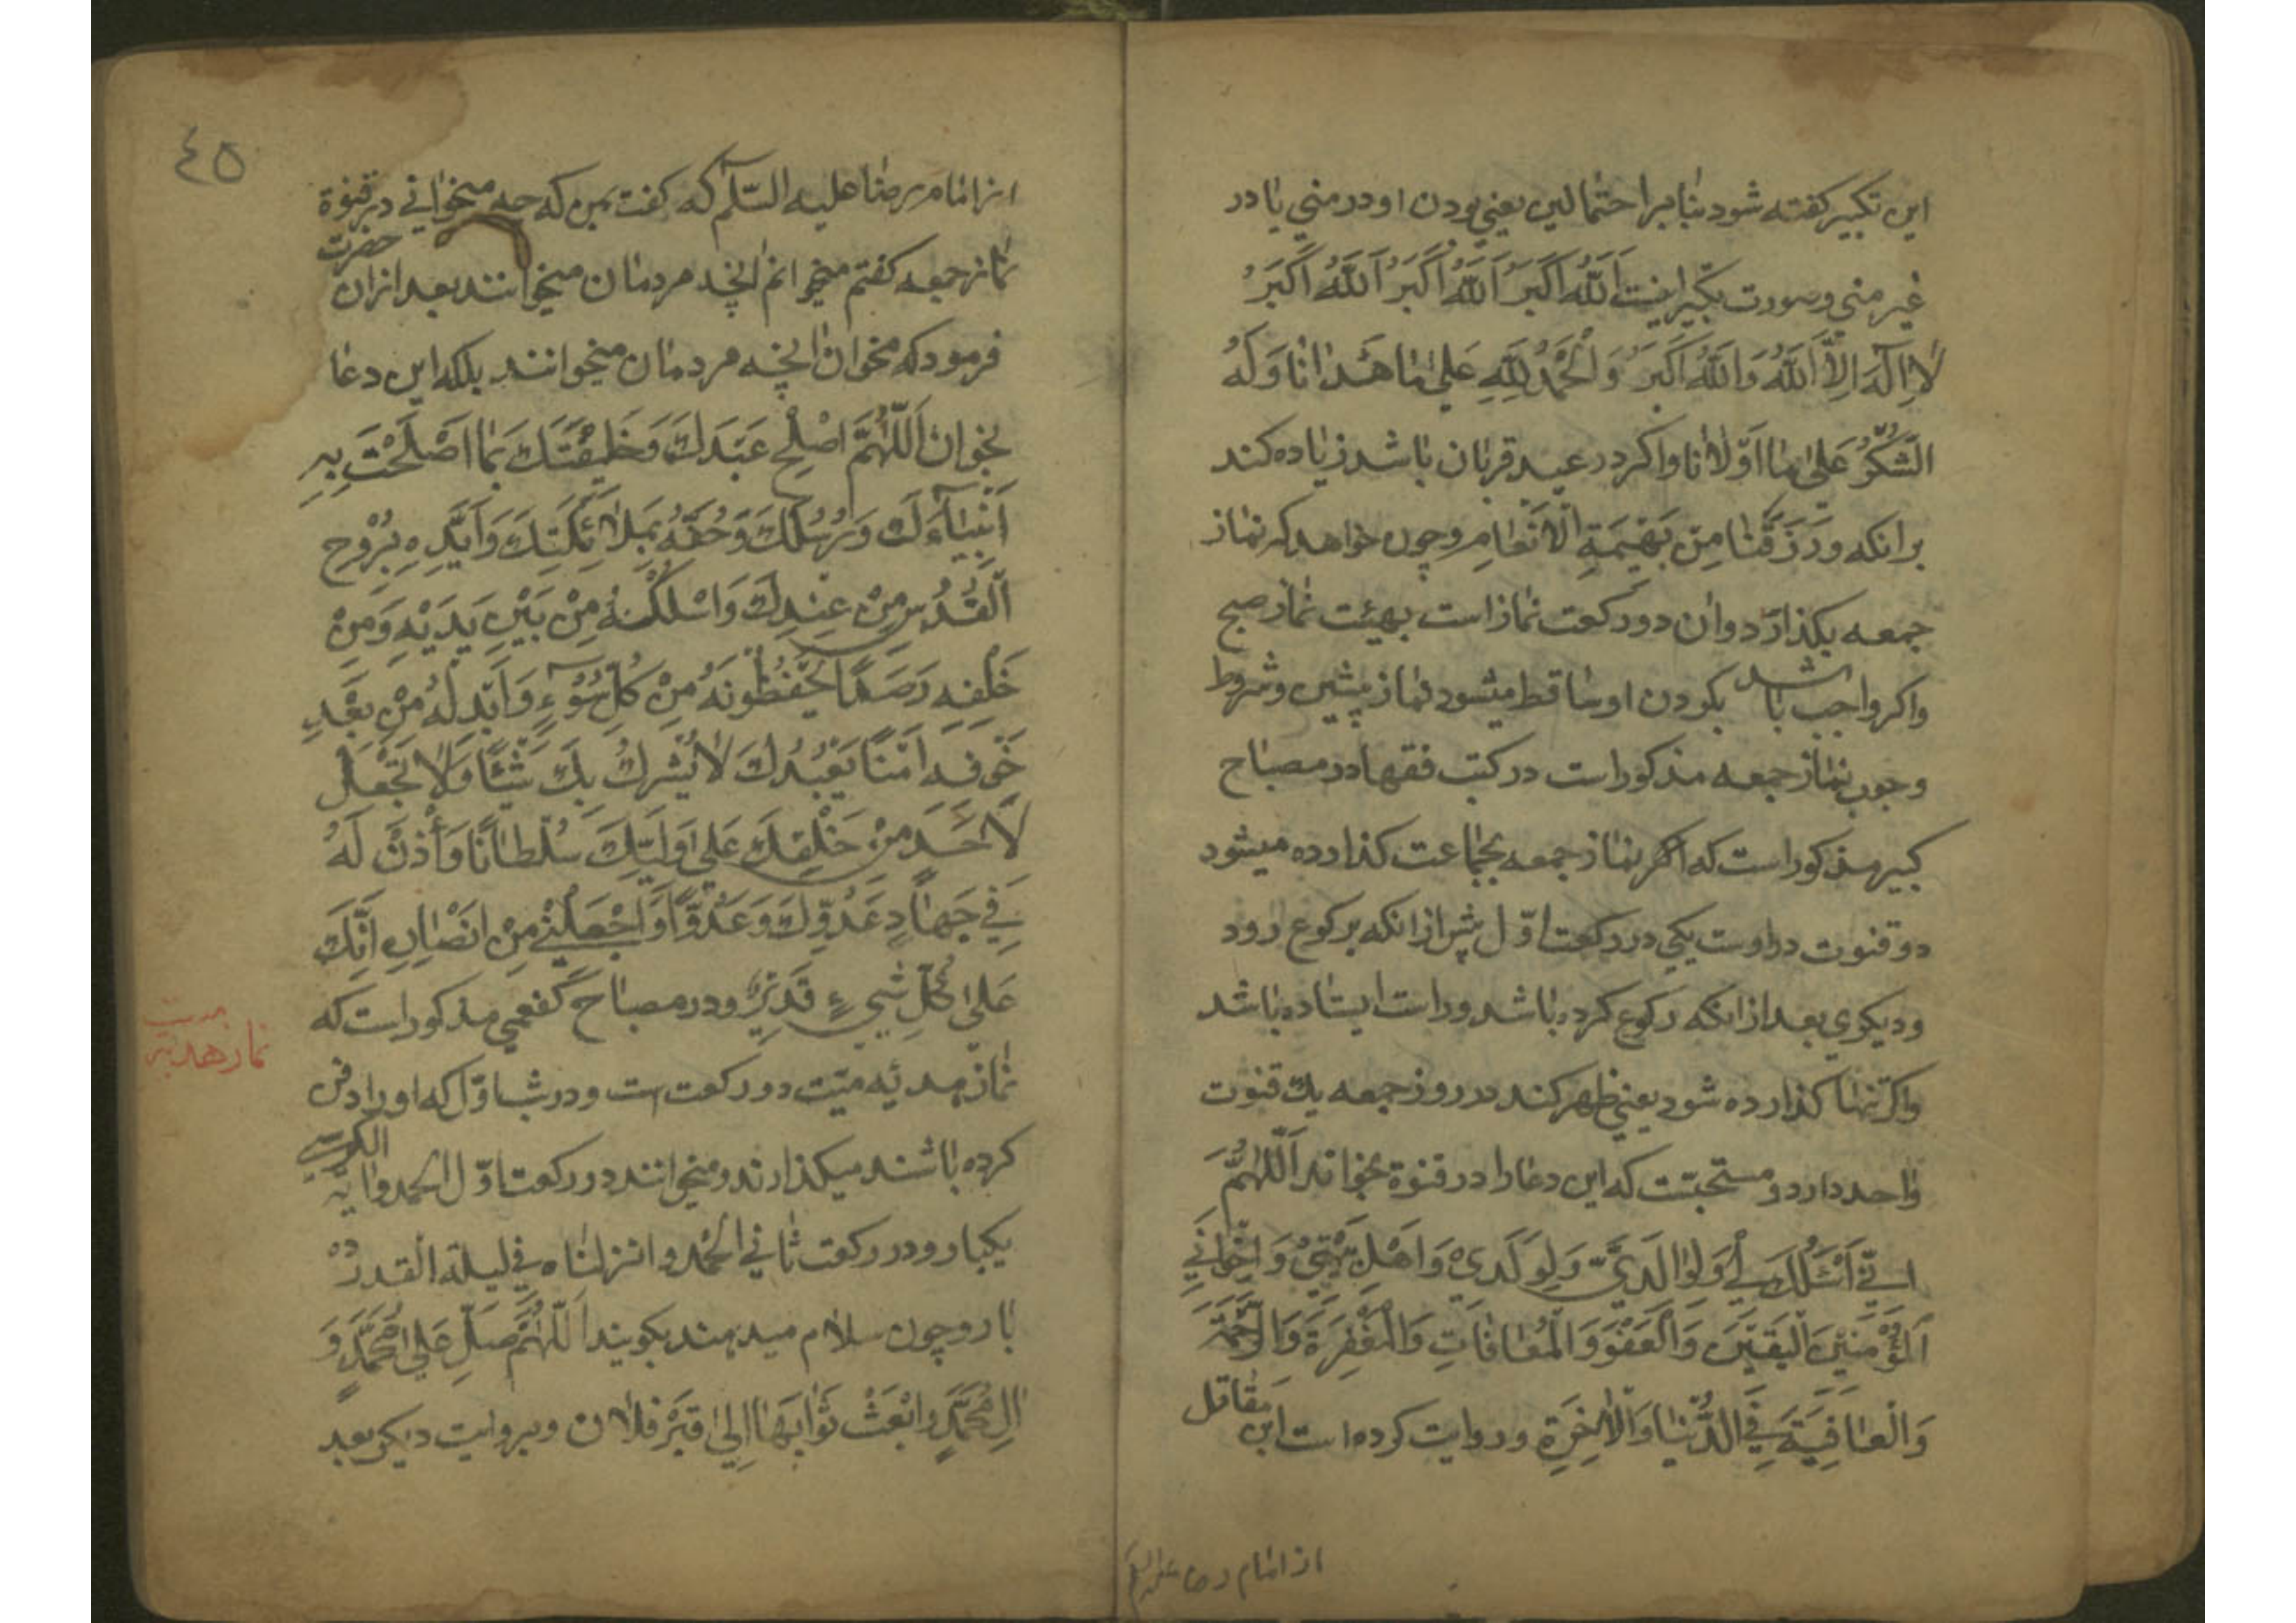 این تکبیر کفته شود بنا بر احتمالین یعنی بودن او در منی یا در
غیر منی وصورت تکبیر اینست اَللّٰهُ اَکْبَرُ اَللّٰهُ اَکْبَرُ اَللّٰهُ اَکْبَرُ
لٰا اِلٰهَ اِلَّا اللّٰهُ وَاللّٰهُ اَکْبَرُ وَالْحَمْدُ لِلّٰهِ عَلیٰ مٰا هَدٰانٰا وَلَهُ
الشُّکْرُ عَلیٰ مٰا اَوْلٰانٰا واکر در عید قربان باشد زیاده کند
برانکه وَرَزَقَنٰا مِنْ بَهیمَةِ الْاَنْعٰامِ وچون خواهد که نماز
جمعه بکذارد وان دو رکعت نماز است بهیئت نماز صبح
واکر واجب باشد بکردن او ساقط میشود نماز پیشین وشروط
وجوب نماز جمعه مذکور است در کتب فقها در مصباح
کبیر مذکور است که اکر نماز جمعه بجماعت کذارده میشود
دو قنوت در اوست یکی در رکعت اوّل پیش از انکه برکوع رود
ودیکری بعد از انکه رکوع کرده باشد وراست ایستاده باشد
واکر تنها کذارده شود یعنی ظهر کند در روز جمعه یك قنوت
واحد دارد ومستحبّست که این دعا را در قنوة بخواند اَللّٰهُمَّ
اِنّی اَسْئَلُكَ لی وَلِوٰالِدَیَّ وَلِوَلَدی وَاَهْلِ بَیْتی وَاِخْوٰانی
اَلْمُؤْمِنینَ الْیَقینَ وَالْعَفْوَ وَالْمُعٰافٰاتِ وَالْمَغْفِرَةَ وَالرَّحْمَةَ
وَالْعٰافِیَةَ فِی الدُّنْیٰا وَالْاٰخِرَةِ وروایت کرده است ابن مقاتل
از امام رضا علیه السلم
٤٥
از امام رضا علیه السّلم که کفت بمن که چه میخوانی در قنوة
نماز جمعه کفتم میخوانم انچه مردمان میخوانند بعد ازان حضرت
فرمود که مخوان انچه مردمان میخوانند بلکه این دعا
بخوان اَللّٰهُمَّ اَصْلِحْ عَبْدَكَ وَخَلیفَتَكَ بِمٰا اَصْلَحْتَ بِهِ
اَنْبِیٰآءَكَ وَرُسُلَكَ وَحُفَّهُ بِمَلٰائِکَتِكَ وَاَیِّدْهُ بِرُوْحِ
الْقُدُسِ مِنْ عِنْدِكَ وَاسْلُکْهُ مِنْ بَیْنِ یَدَیْهِ وَمِنْ
خَلْفِهِ رَصَدًا یَحْفَظُونَهُ مِنْ کُلِّ سُوْءٍ وَاَبْدِلْهُ مِنْ بَعْدِ
خَوْفِهِ اَمْنًا یَعْبُدُكَ لٰا یُشْرِكُ بِكَ شَیْئًا وَلٰا تَجْعَلْ
لِاَحَدٍ مِنْ خَلْقِكَ عَلیٰ وَلِیِّكَ سُلْطٰانًا وَأْذَنْ لَهُ
فی جِهٰادِ عَدُوِّكَ وَعَدُوِّهِ وَاجْعَلْنی مِنْ اَنْصٰارِهِ اِنَّكَ
عَلیٰ کُلِّ شَیْءٍ قَدیرٌ ودر مصباح کفعمی مذکور است که
نماز هدیه
نماز هدیّه میّت دو رکعت است ودر شب اوّل که او را دفن
کرده باشند میکذارند ومیخوانند در رکعت اوّل الحمد وایة الکرسی
یکبار ودر رکعت ثانی الحمد وانزلناه فی لیلة القدر ده
بار وچون سلام میدهند بکویند اَللّٰهُمَّ صَلِّ عَلیٰ مُحَمَّدٍ وَ
اٰلِ مُحَمَّدٍ وَابْعَثْ ثَوٰابَهٰا اِلیٰ قَبْرِ فلان وبروایت دیکر بعد